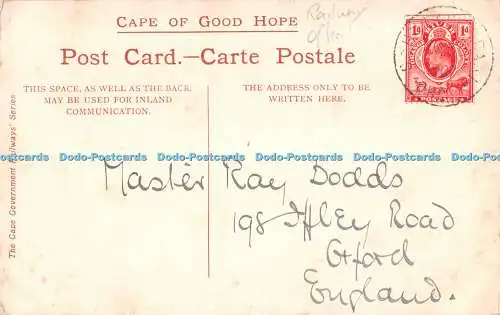 CAPE OF GOOD HOPE
Railway
Post Card.—Carte Postale
THIS SPACE, AS WELL AS THE BACK,
MAY BE USED FOR INLAND
COMMUNICATION.
THE ADDRESS ONLY TO BE
WRITTEN HERE.
1d 1d
The Cape Government Railways' Series
Dodo-Postcards Dodo-Postcards Dodo-Postcards Dodo-Postcards Dodo-Postcards Dodo-Postcards
Master Ray Dodds
198 Iffley Road
Oxford
England.